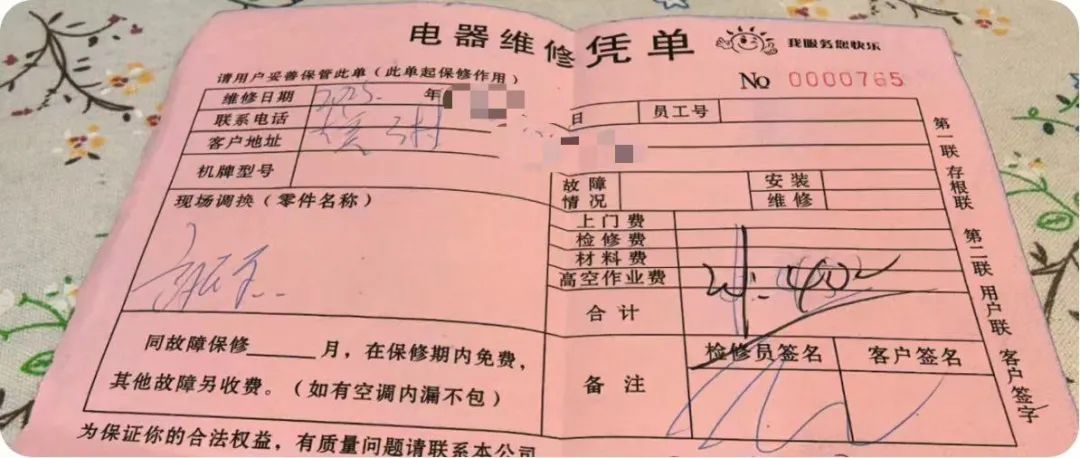 电器维修凭单 我服务您快乐
请用户妥善保管此单（此单起保修作用） No 0000765
维修日期 2025. 年 日 员工号
联系电话
客户地址
机牌型号 故障情况 安装 维修
现场调换（零件名称）
上门费
检修费
材料费
高空作业费
合计
同故障保修______月，在保修期内免费，
其他故障另收费。（如有空调内漏不包）
备注 检修员签名 客户签名
为保证你的合法权益，有质量问题请联系本公司
第一联 存根联 第二联 用户联 客户签字